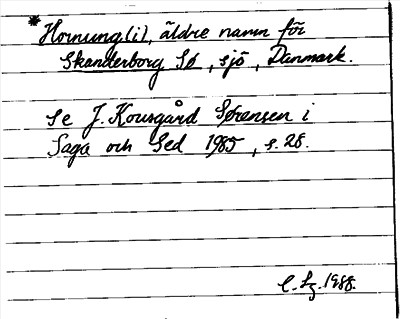 *Hornung(i), äldre namn för
Skanderborg Sø, sjö, Danmark.
Se J. Kousgård Sørensen i
Saga och Sed 1985, s. 28.
1988.